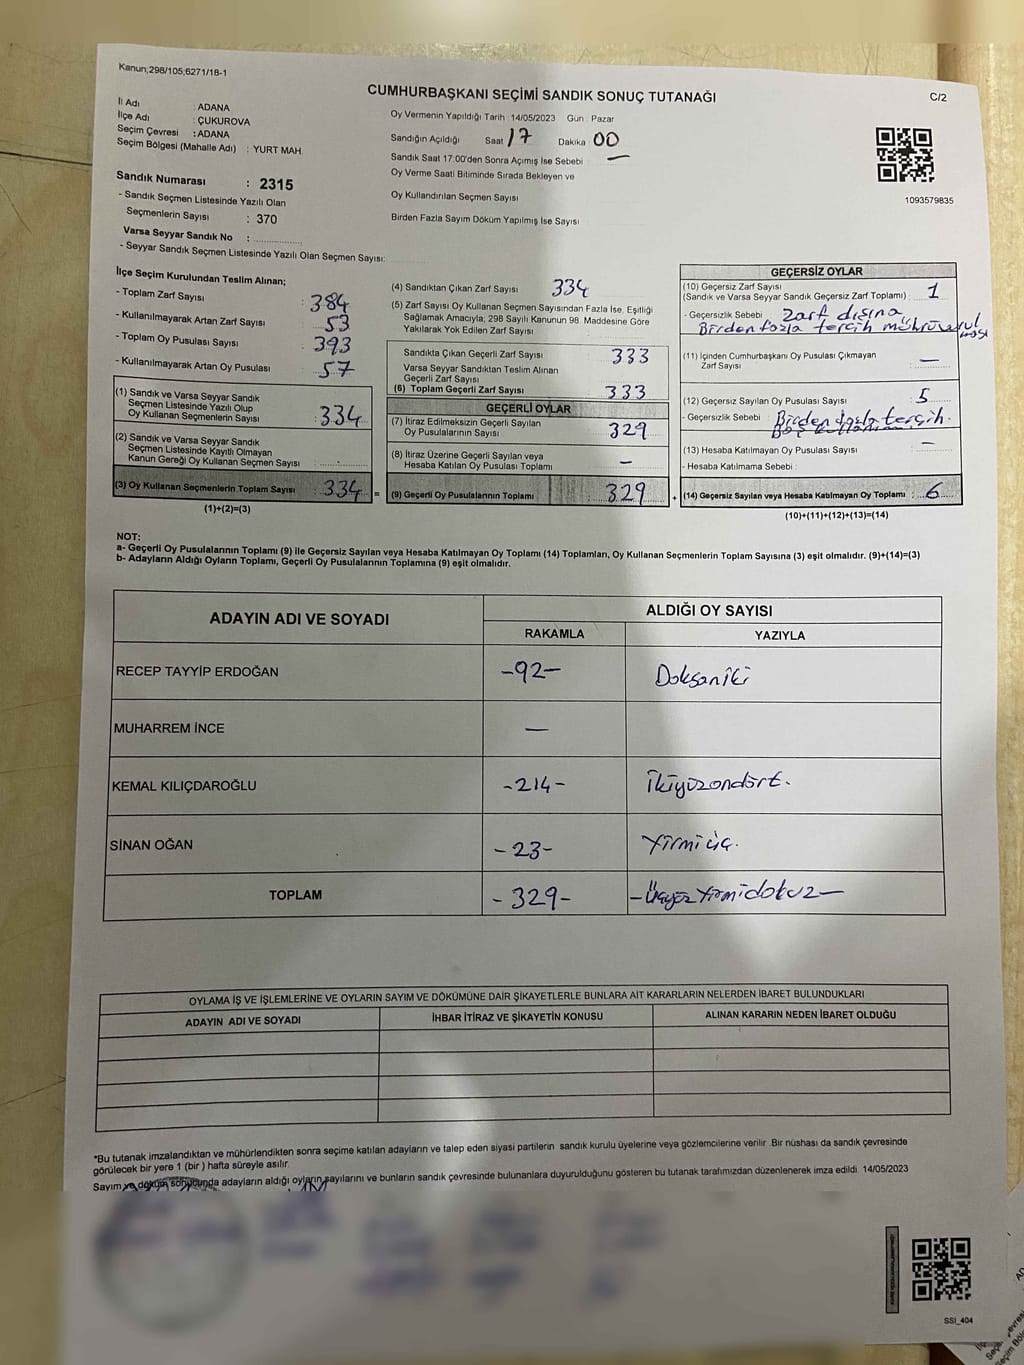 Kanun;298/105;6271/18-1
CUMHURBAŞKANI SEÇİMİ SANDIK SONUÇ TUTANAĞI
C/2
İl Adı : ADANA
İlçe Adı : ÇUKUROVA
Seçim Çevresi : ADANA
Seçim Bölgesi (Mahalle Adı) : YURT MAH.
Sandık Numarası : 2315
- Sandık Seçmen Listesinde Yazılı Olan
Seçmenlerin Sayısı : 370
Varsa Seyyar Sandık No :
- Seyyar Sandık Seçmen Listesinde Yazılı Olan Seçmen Sayısı:
Oy Vermenin Yapıldığı Tarih : 14/05/2023 Gün : Pazar
Sandığın Açıldığı Saat 17 Dakika : 00
Sandık Saat 17.00'den Sonra Açımış İse Sebebi —
Oy Verme Saati Bitiminde Sırada Bekleyen ve
Oy Kullandırılan Seçmen Sayısı
Birden Fazla Sayım Döküm Yapılmış İse Sayısı
1093579835
İlçe Seçim Kurulundan Teslim Alınan;
- Toplam Zarf Sayısı : 384
- Kullanılmayarak Artan Zarf Sayısı : 53
- Toplam Oy Pusulası Sayısı : 393
- Kullanılmayarak Artan Oy Pusulası : 57
(1) Sandık ve Varsa Seyyar Sandık
Seçmen Listesinde Yazılı Olup
Oy Kullanan Seçmenlerin Sayısı : 334
(2) Sandık ve Varsa Seyyar Sandık
Seçmen Listesinde Kayıtlı Olmayan
Kanun Gereği Oy Kullanan Seçmen Sayısı :
(3) Oy Kullanan Seçmenlerin Toplam Sayısı : 334 =
(1)+(2)=(3)
(4) Sandıktan Çıkan Zarf Sayısı 334
(5) Zarf Sayısı Oy Kullanan Seçmen Sayısından Fazla İse, Eşitliği
Sağlamak Amacıyla; 298 Sayılı Kanunun 98. Maddesine Göre
Yakılarak Yok Edilen Zarf Sayısı
Sandıkta Çıkan Geçerli Zarf Sayısı : 333
Varsa Seyyar Sandıktan Teslim Alınan
Geçerli Zarf Sayısı
(6) Toplam Geçerli Zarf Sayısı : 333
GEÇERLİ OYLAR
(7) İtiraz Edilmeksizin Geçerli Sayılan
Oy Pusulalarının Sayısı : 329
(8) İtiraz Üzerine Geçerli Sayılan veya
Hesaba Katılan Oy Pusulası Toplamı : —
(9) Geçerli Oy Pusulalarının Toplamı : 329 +
GEÇERSİZ OYLAR
(10) Geçersiz Zarf Sayısı
(Sandık ve Varsa Seyyar Sandık Geçersiz Zarf Toplamı) : 1
- Geçersizlik Sebebi : Zarf dışına
Birden fazla tercih
(11) İçinden Cumhurbaşkanı Oy Pusulası Çıkmayan
Zarf Sayısı : —
(12) Geçersiz Sayılan Oy Pusulası Sayısı : 5
- Geçersizlik Sebebi : Birden fazla tercih.
(13) Hesaba Katılmayan Oy Pusulası Sayısı : —
- Hesaba Katılmama Sebebi :
(14) Geçersiz Sayılan veya Hesaba Katılmayan Oy Toplamı : 6
(10)+(11)+(12)+(13)=(14)
NOT:
a- Geçerli Oy Pusulalarının Toplamı (9) ile Geçersiz Sayılan veya Hesaba Katılmayan Oy Toplamı (14) Toplamları, Oy Kullanan Seçmenlerin Toplam Sayısına (3) eşit olmalıdır. (9)+(14)=(3)
b- Adayların Aldığı Oyların Toplamı, Geçerli Oy Pusulalarının Toplamına (9) eşit olmalıdır.
ADAYIN ADI VE SOYADI ALDIĞI OY SAYISI
RAKAMLA YAZIYLA
RECEP TAYYİP ERDOĞAN -92- Doksaniki
MUHARREM İNCE —
KEMAL KILIÇDAROĞLU -214- İkiyüzondört.
SİNAN OĞAN -23- Yirmiüç.
TOPLAM -329- -Üçyüzyirmidokuz-
OYLAMA İŞ VE İŞLEMLERİNE VE OYLARIN SAYIM VE DÖKÜMÜNE DAİR ŞİKAYETLERLE BUNLARA AİT KARARLARIN NELERDEN İBARET BULUNDUKLARI
ADAYIN ADI VE SOYADI İHBAR İTİRAZ VE ŞİKAYETİN KONUSU ALINAN KARARIN NEDEN İBARET OLDUĞU
*Bu tutanak imzalandıktan ve mühürlendikten sonra seçime katılan adayların ve talep eden siyasi partilerin sandık kurulu üyelerine veya gözlemcilerine verilir. Bir nüshası da sandık çevresinde
görülecek bir yere 1 (bir ) hafta süreyle asılır.
Sayım ve döküm sonucunda adayların aldığı oyların sayılarını ve bunların sandık çevresinde bulunanlara duyurulduğunu gösteren bu tutanak tarafımızdan düzenlenerek imza edildi. 14/05/2023
SSI_404